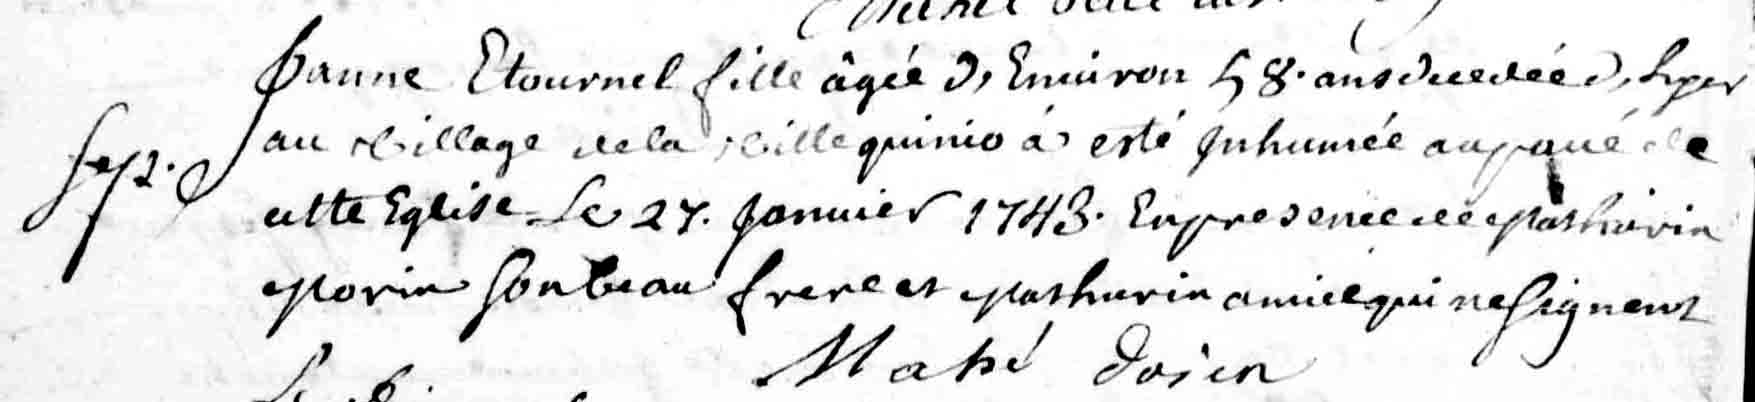 Janne Etournel fille âgée d'Environ 58. ans decedée d'hyer
Sept. au Village de la Ville quinio á esté Jnhumée au pavé de
cette Eglise Le 27. Janvier 1743. En presence de Mathurin
Morin Son beau frere et Mathurin amicé qui ne Signent
Mahé doien